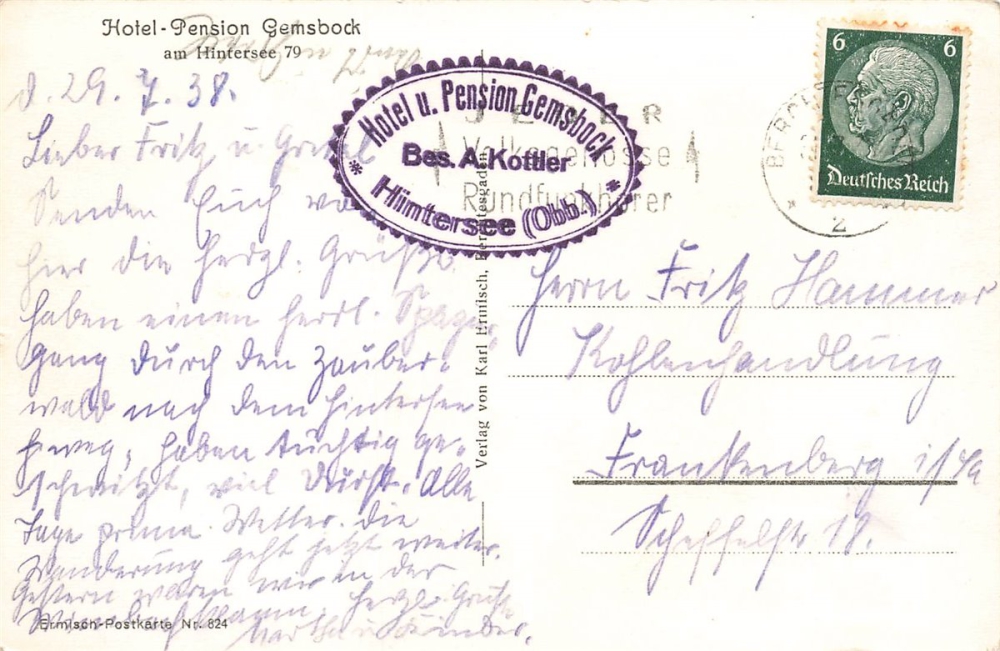 Hotel-Pension Gemsbock
am Hintersee 79
d. 29. 7. 38.
Lieber Fritz u. Gretel
Senden Euch von
hier die herzl. Grüße
haben einen herrl. Spazier-
gang durch den Zauber-
wald nach dem Hintersee
hinweg, haben tüchtig ge-
schwitzt, viel Durst. Alle
Tage prima Wetter. Die
Wanderung geht jetzt weiter.
Gestern waren wir in der
Herzl. Grüße
Martha u. Kinder.
Ermisch-Postkarte Nr. 824
Verlag von Karl Ermisch, Berchtesgaden
Hotel u. Pension Gemsbock
Bes. A. Kottler
Hintersee (Obb.)
JEDER
Volksgenosse
Rundfunkhörer
6 6
Deutsches Reich
BERCHTESGADEN
2
Herrn Fritz Hammer
Kohlenhandlung
Frankenberg i/Sa
Scheffelstr 18.